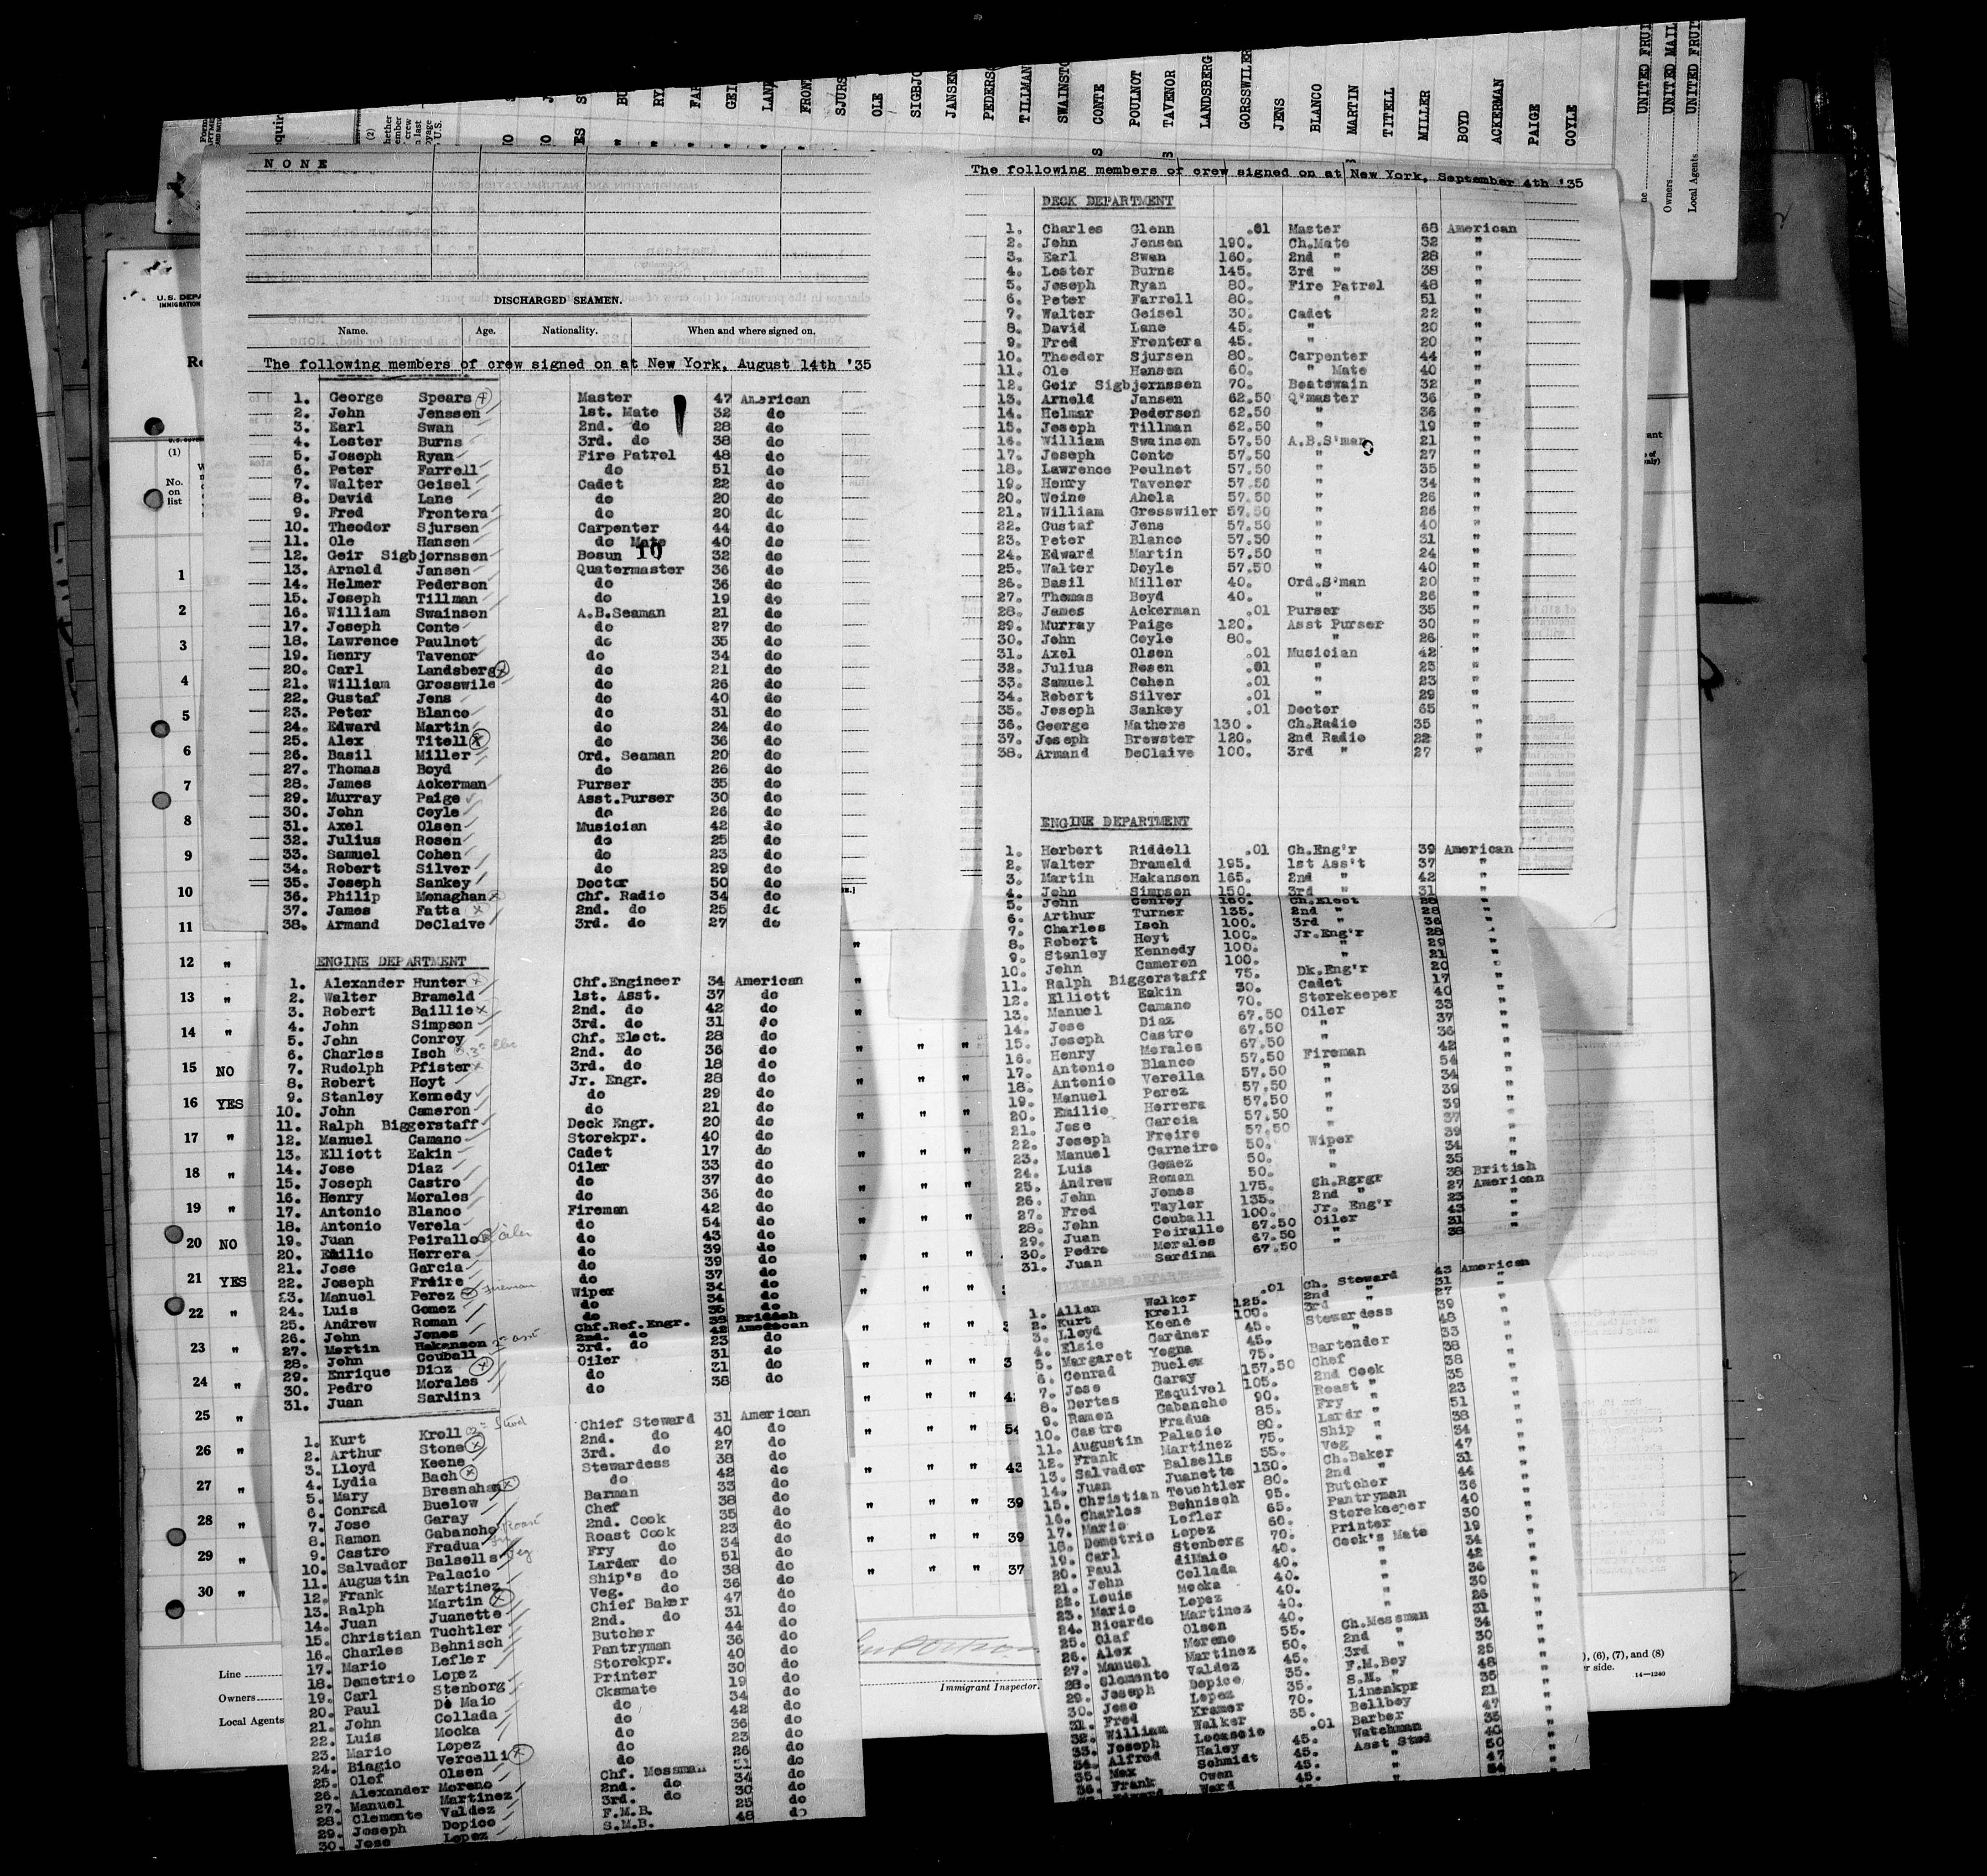 NONE
DISCHARGED SEAMEN.
Name. Age. Nationality. When and where signed on.
The following members of crew signed on at New York, August 14th '35
1. George Spears Master 47 American
2. John Jenssen 1st. Mate 32 do
3. Earl Swan 2nd. do 28 do
4. Lester Burns 3rd. do 38 do
5. Joseph Ryan Fire Patrol 48 do
6. Peter Farrell do 51 do
7. Walter Geisel Cadet 22 do
8. David Lane do 20 do
9. Fred Frontera do 20 do
10. Theodor Sjursen Carpenter 44 do
11. Ole Hansen do Mate 40 do
12. Geir Sigbjornssen Bosun 32 do
10
13. Arnold Jansen Quatermaster 36 do
14. Helmer Pederson do 36 do
15. Joseph Tillman do 19 do
16. William Swainson A.B.Seaman 21 do
17. Joseph Conte do 27 do
18. Lawrence Paulnot do 35 do
19. Henry Tavenor do 34 do
20. Carl Landsberg do 21 do
21. William Grosswile do 26 do
22. Gustaf Jens do 40 do
23. Peter Blanco do 31 do
24. Edward Martin do 24 do
25. Alex Titell do 36 do
26. Basil Miller Ord. Seaman 20 do
27. Thomas Boyd do 26 do
28. James Ackerman Purser 35 do
29. Murray Paige Asst.Purser 30 do
30. John Coyle do 26 do
31. Axel Olsen Musician 42 do
32. Julius Rosen do 25 do
33. Samuel Cohen do 23 do
34. Robert Silver do 29 do
35. Joseph Sankey Doctor 50 do
36. Philip Monaghan Chf. Radio 34 do
37. James Fatta 2nd. do 25 do
38. Armand DeClaive 3rd. do 27 do
ENGINE DEPARTMENT
1. Alexander Hunter Chf.Engineer 34 American
2. Walter Brameld 1st. Asst. 37 do
3. Robert Baillie 2nd. do 42 do
4. John Simpson 3rd. do 31 do
5. John Conroy Chf. Elect. 28 do
6. Charles Isch 2nd. do 36 do
7. Rudolph Pfister 3rd. do 18 do
8. Robert Hoyt Jr. Engr. 28 do
9. Stanley Kennedy do 29 do
10. John Cameron do 21 do
11. Ralph Biggerstaff Deck Engr. 20 do
12. Manuel Camano Storekpr. 40 do
13. Elliott Eakin Cadet 17 do
14. Jose Diaz Oiler 33 do
15. Joseph Castro do 37 do
16. Henry Morales do 36 do
17. Antonio Blanco Fireman 42 do
18. Antonio Verela do 54 do
19. Juan Peirallo oiler do 43 do
20. Emilio Herrera do 39 do
21. Jose Garcia do 39 do
22. Joseph Freire do 37 do
23. Manuel Perez fireman Wiper 34 do
24. Luis Gomez do 34 do
25. Andrew Roman do 35 do
26. John Jones Chf.Ref.Engr. 38 British
27. Martin Hakanson 2nd. do 42 American
28. John Couball 3rd. do 23 do
29. Enrique Diaz Oiler 31 do
30. Pedro Morales do 31 do
31. Juan Sardina do 38 do
1. Kurt Kroll Chief Steward 31 American
2. Arthur Stone 2nd. do 40 do
3. Lloyd Keene 3rd. do 27 do
4. Lydia Bach Stewardess 38 do
5. Mary Bresnahan do 42 do
6. Conrad Buelow Barman 33 do
7. Jose Garay Chef 38 do
8. Ramon Gabancho 2nd. Cook 35 do
9. Castro Fradua Roast Cook 23 do
10. Salvador Balsells Fry do 34 do
11. Augustin Palacio Larder do 51 do
12. Frank Martinez Ship's do 38 do
13. Ralph Martin Veg. do 36 do
14. Juan Juanette Chief Baker 47 do
15. Christian Tuchtler 2nd. do 31 do
16. Charles Behnisch Butcher 44 do
17. Mario Lefler Pantryman 36 do
18. Demetrio Lopez Storekpr. 40 do
19. Carl Stenborg Printer 30 do
20. Paul Di Maio Cksmate 19 do
21. John Collada do 34 do
22. Luis Mocka do 42 do
23. Mario Lopez do 36 do
24. Biagio Vercelli do 23 do
25. Olof Olsen do 26 do
26. Alexander Moreno Chf. Messman 31 do
27. Manuel Martinez 2nd. do 34 do
28. Clemente Valdez 3rd. do 30 do
29. Joseph Dopico F.M.B. 25 do
30. Jose Lopez S.M.B. 48 do
The following members of crew signed on at New York, September 4th '35
DECK DEPARTMENT
1. Charles Glenn .01 Master 68 American
2. John Jensen 190. Ch.Mate 32 "
3. Earl Swan 160. 2nd " 28 "
4. Lester Burns 145. 3rd " 38 "
5. Joseph Ryan 80. Fire Patrol 48 "
6. Peter Farrell 80. " 51 "
7. Walter Geisel 30. Cadet 22 "
8. David Lane 45. " 20 "
9. Fred Frontera 45. " 20 "
10. Theodor Sjursen 80. Carpenter 44 "
11. Ole Hansen 60. " Mate 40 "
12. Geir Sigbjornssen 70. Boatswain 32 "
13. Arnold Jansen 62.50 Q'master 36 "
14. Helmar Pederson 62.50 " 36 "
15. Joseph Tillman 62.50 " 19 "
16. William Swainson 57.50 A.B.S'man 21 "
9
17. Joseph Conte 57.50 " 27 "
18. Lawrence Poulnot 57.50 " 35 "
19. Henry Tavenor 57.50 " 34 "
20. Weine Ahola 57.50 " 26 "
21. William Gresswiler 57.50 " 26 "
22. Gustaf Jens 57.50 " 40 "
23. Peter Blanco 57.50 " 31 "
24. Edward Martin 57.50 " 24 "
25. Walter Doyle 57.50 " 40 "
26. Basil Miller 40. Ord.S'man 20 "
27. Thomas Boyd 40. " 26 "
28. James Ackerman .01 Purser 35 "
29. Murray Paige 120. Asst Purser 30 "
30. John Coyle 80. " 26 "
31. Axel Olsen .01 Musician 42 "
32. Julius Rosen .01 " 25 "
33. Samuel Cohen .01 " 23 "
34. Robert Silver .01 " 29 "
35. Joseph Sankey .01 Doctor 65 "
36. George Mathers 130. Ch.Radio 35 "
37. Joseph Brewster 120. 2nd Radio 22 "
38. Armand DeClaive 100. 3rd " 27 "
ENGINE DEPARTMENT
1. Herbert Riddell .01 Ch.Eng'r 39 American
2. Walter Brameld 195. 1st Ass't 37 "
3. Martin Hakanson 165. 2nd " 42 "
4. John Simpson 150. 3rd " 31 "
5. John Conroy 160. Ch.Elect 28 "
6. Arthur Turner 135. 2nd " 28 "
7. Charles Isch 100. 3rd " 36 "
8. Robert Hoyt 100. Jr.Eng'r 28 "
9. Stanley Kennedy 100. " 29 "
10. John Cameron 100. " 21 "
11. Ralph Biggerstaff 75. Dk.Eng'r 20 "
12. Elliott Eakin 30. Cadet 17 "
13. Manuel Camano 70. Storekeeper 40 "
14. Jose Diaz 67.50 Oiler 33 "
15. Joseph Castro 67.50 " 37 "
16. Henry Morales 67.50 " 36 "
17. Antonio Blanco 57.50 Fireman 42 "
18. Antonio Verella 57.50 " 54 "
19. Manuel Perez 57.50 " 34 "
20. Emilio Herrera 57.50 " 39 "
21. Jose Garcia 57.50 " 39 "
22. Joseph Freire 57.50 " 37 "
23. Manuel Carneiro 50. Wiper 39 "
24. Luis Gomez 50. " 34 "
25. Andrew Roman 50. " 35 "
26. John Jones 175. Ch.Rgrgr 38 British
27. Fred Taylor 135. 2nd " 27 American
28. John Couball 100. Jr. Eng'r 23 "
29. Juan Peirallo 67.50 Oiler 43 "
30. Pedro Morales 67.50 " 31 "
31. Juan Sardina 67.50 " 38 "
STEWARDS DEPARTMENT
1. Allan Walker .01 Ch. Steward 43 American
2. Kurt Kroll 125. 2nd " 31 "
3. Lloyd Keene 100. 3rd " 27 "
4. Elsie Gardner 45. Stewardess 39 "
5. Margaret Yogna 45. " 48 "
6. Conrad Buelow 75. Bartender 33 "
7. Jose Garay 157.50 Chef 38 "
8. Dortes Esquivel 105. 2nd Cook 38 "
9. Ramon Gabancho 90. Roast " 35 "
10. Castro Fradua 85. Fry " 23 "
11. Augustin Palacio 80. Lardr " 51 "
12. Frank Martinez 75. Ship " 38 "
13. Salvador Balsells 55. Veg " 34 "
14. Juan Juanette 130. Ch.Baker 47 "
15. Christian Teuchtler 80. 2nd " 31 "
16. Charles Behnisch 95. Butcher 44 "
17. Mario Lefler 65. Pantryman 36 "
18. Demetrio Lopez 60. Storekeeper 40 "
19. Carl Stenberg 70. Printer 30 "
20. Paul diMaio 40. Cook's Mate 19 "
21. John Collada 40. " 34 "
22. Louis Mocka 40. " 42 "
23. Mario Lopez 40. " 36 "
24. Ricardo Martinez 40. " 30 "
25. Olaf Olsen 40. " 26 "
26. Alex Moreno 55. Ch.Messman 31 "
27. Manuel Martinez 50. 2nd " 34 "
28. Clemente Valdez 45. 3rd " 30 "
29. Joseph Dopico 35. F.M.Boy 25 "
30. Jose Lopez 35. S.M. " 48 "
31. Fred Kramer 70. Linenkpr 35 "
32. William Walker 35. Bellboy 21 "
33. Joseph Locascio .01 Barber 47 "
34. Alfred Haley 45. Watchman 35 "
35. Max Schmidt 45. Asst Stwd 40 "
36. Frank Owen 45. " 50 "
Ward
OLE
JANSEN
CONTE
POULNOT
TAVENOR
LANDSBERG
GORSSWILER
JENS
BLANCO
MARTIN
TITELL
MILLER
BOYD
ACKERMAN
PAIGE
COYLE
Owners
Local Agents
UNITED FRUI
UNITED MAIL
UNITED FRUI
U.S. DEPA
IMMIGRATION
(1)
No. on list
1
2
3
4
5
6
7
8
9
10
11
12 "
13 "
14 "
15 NO
16 YES
17 "
18 "
19 "
20 NO
21 YES
22 "
23 "
24 "
25 "
26 "
27 "
28 "
29 "
30 "
Line
Owners
Local Agents
Immigrant Inspector.
(6), (7), and (8)
side.
14—1240